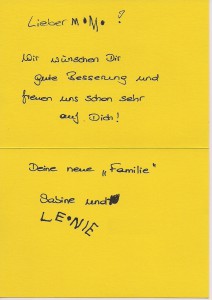 Lieber M•M• !
Wir wünschen Dir
gute Besserung und
freuen uns schon sehr
auf Dich!
Deine neue „Familie"
Sabine und
LE•NIE